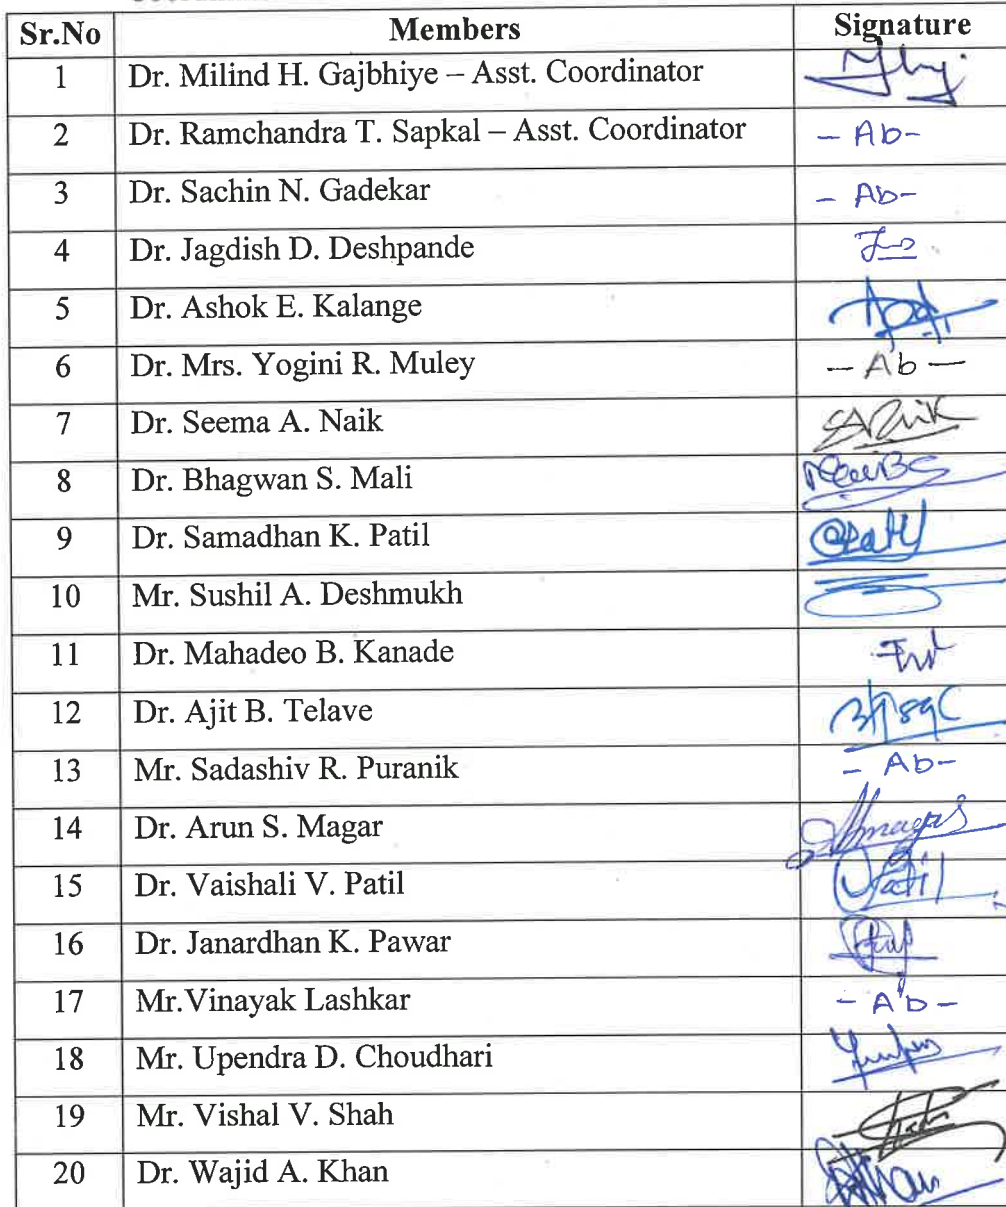 Sr.No Members Signature
1 Dr. Milind H. Gajbhiye – Asst. Coordinator
2 Dr. Ramchandra T. Sapkal – Asst. Coordinator – Ab-
3 Dr. Sachin N. Gadekar – Ab-
4 Dr. Jagdish D. Deshpande
5 Dr. Ashok E. Kalange
6 Dr. Mrs. Yogini R. Muley – Ab –
7 Dr. Seema A. Naik SANaik
8 Dr. Bhagwan S. Mali
9 Dr. Samadhan K. Patil
10 Mr. Sushil A. Deshmukh
11 Dr. Mahadeo B. Kanade
12 Dr. Ajit B. Telave
13 Mr. Sadashiv R. Puranik – Ab-
14 Dr. Arun S. Magar
15 Dr. Vaishali V. Patil
16 Dr. Janardhan K. Pawar
17 Mr.Vinayak Lashkar – Ab –
18 Mr. Upendra D. Choudhari
19 Mr. Vishal V. Shah
20 Dr. Wajid A. Khan